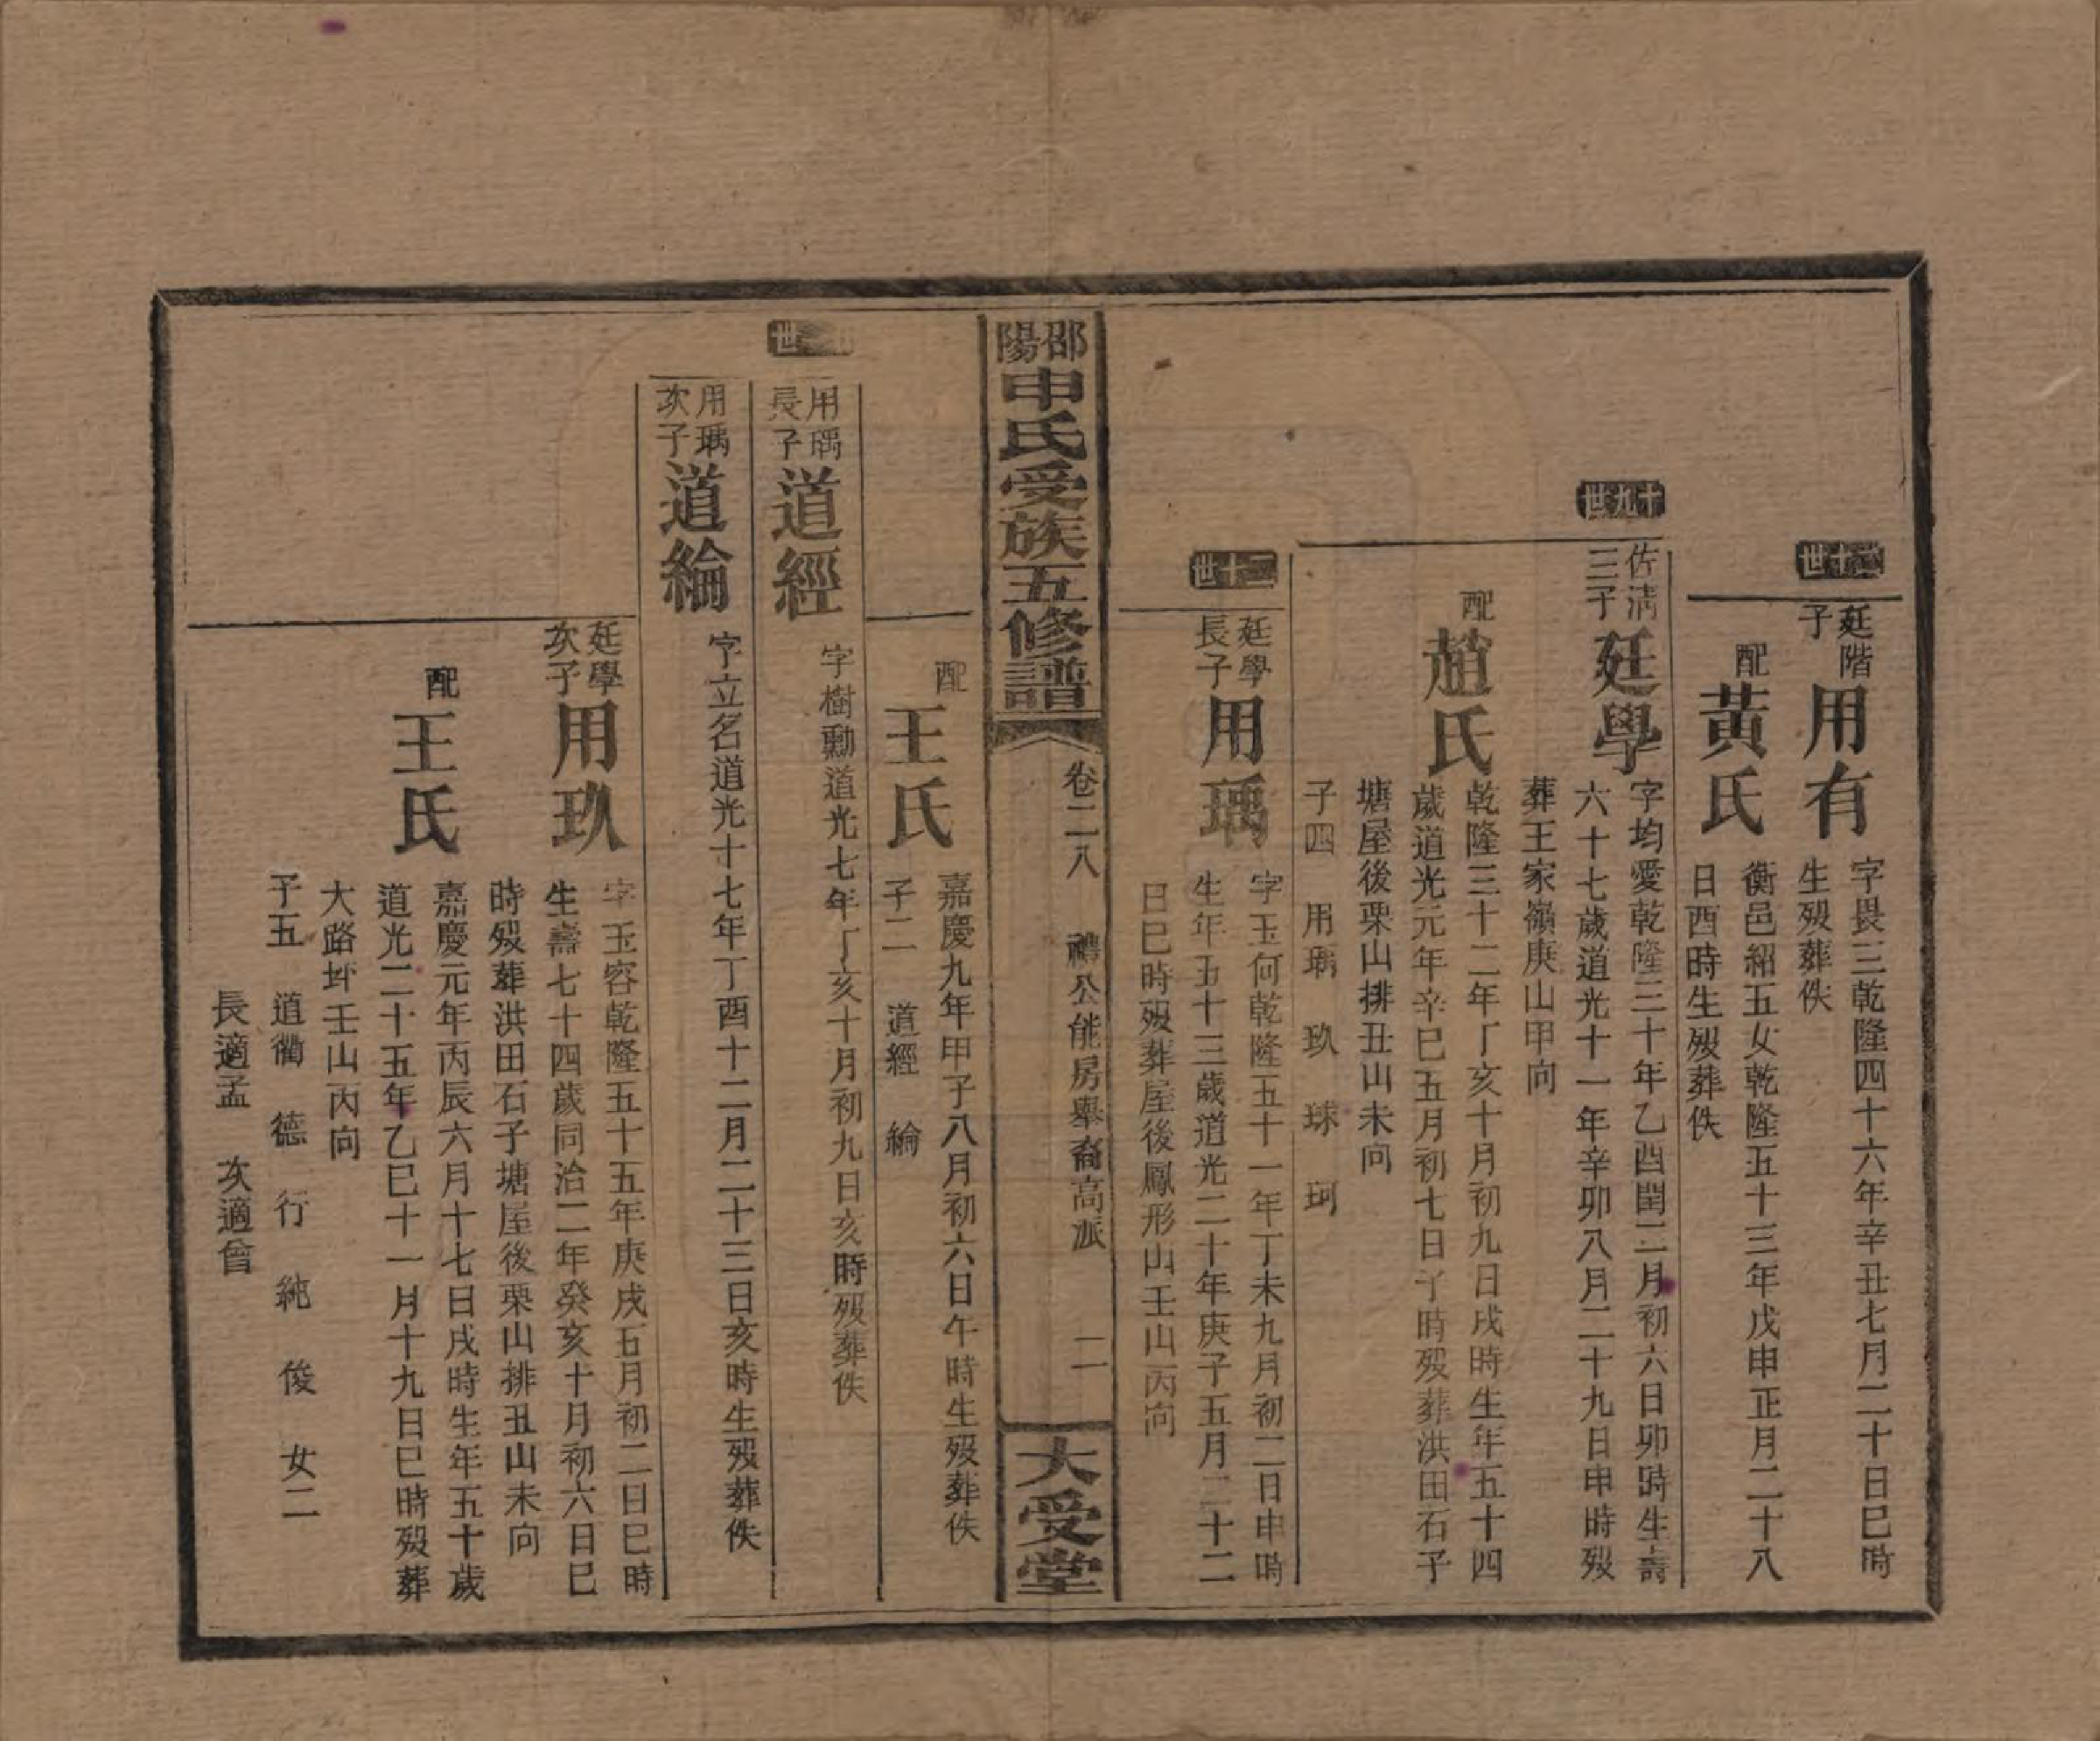 二十世
廷階子
用有
字畏三乾隆四十六年辛丑七月二十日巳時
生歿葬佚
配
黃氏
衡邑紹五女乾隆五十三年戊申正月二十八
日酉時生歿葬佚
十九世
佐淸三子
廷學
字均愛乾隆三十年乙酉閏二月初六日卯時生壽
六十七歲道光十一年辛卯八月二十九日申時歿
葬王家嶺庚山甲向
配
趙氏
乾隆三十二年丁亥十月初九日戌時生年五十四
歲道光元年辛巳五月初七日子時歿葬洪田石子
塘屋後栗山排丑山未向
子四 用瑀 玖 球 珂
二十世
廷學長子
用瑀
字玉何乾隆五十一年丁未九月初二日申時
生年五十三歲道光二十年庚子五月二十二
日巳時歿葬屋後鳳形山壬山丙向
邵陽申氏受族五修譜
卷二八 禮公能房舉裔高派 二
大受堂
配
王氏
嘉慶九年甲子八月初六日午時生歿葬佚
子二 道經 綸
世
用瑀長子
道經
字樹勳道光七年丁亥十月初九日亥時歿葬佚
用瑀次子
道綸
字立名道光十七年丁酉十二月二十三日亥時生歿葬佚
廷學次子
用玖
字玉容乾隆五十五年庚戌五月初二日巳時
生壽七十四歲同治二年癸亥十月初六日巳
時歿葬洪田石子塘屋後栗山排丑山未向
配
王氏
嘉慶元年丙辰六月十七日戌時生年五十歲
道光二十五年乙巳十一月十九日巳時歿葬
大路坪壬山丙向
子五 道衢 德 行 純 俊 女二
長適孟 次適曾